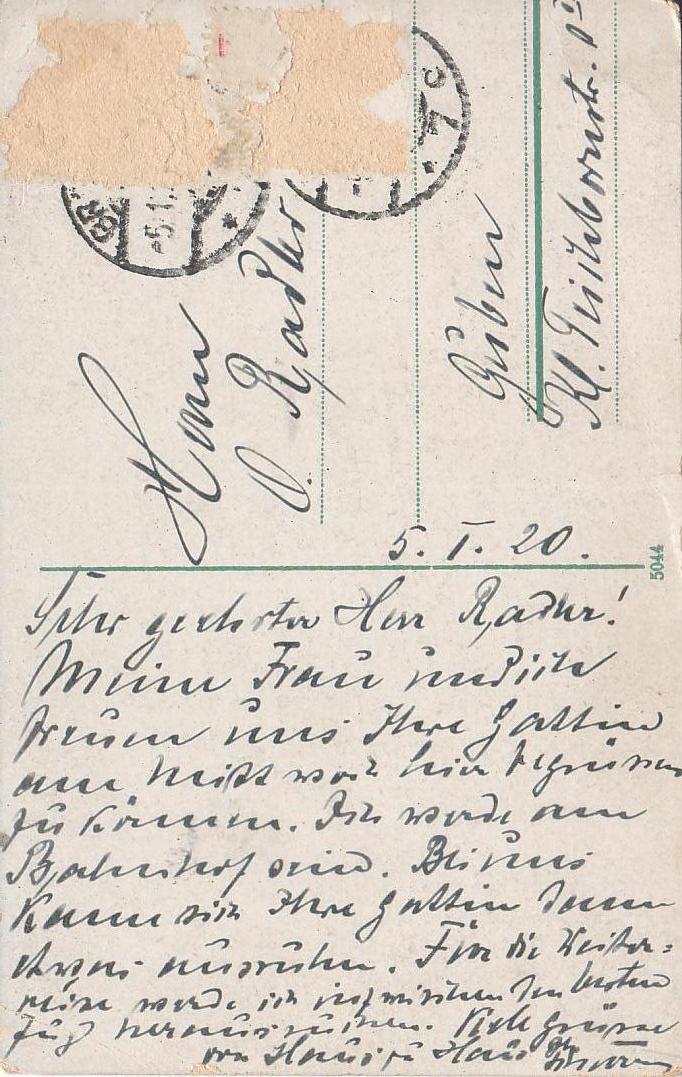 Herrn
O. Radler
Guben
Kl. 
5. I. 20.
5044
Sehr geehrter Herr Radler!
Meine Frau und ich
freuen uns Ihre Gattin
am Mittwoch hier begrüssen
zu können. Ich werde am
Bahnhof sein. Bei uns
kann sich Ihre Gattin dann
etwas ausruhen. Für die Weiter=
reise werde ich inzwischen den besten
Zug heraussuchen. Viele Grüsse
von Haus zu Haus
-5.1.
7